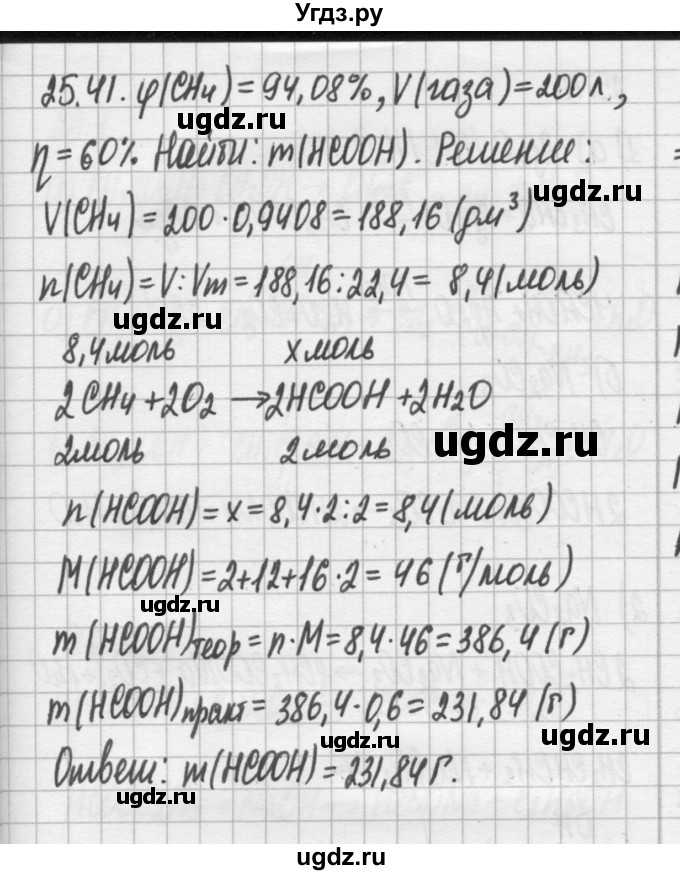 Угдз.ру
25.41. φ(CH₄) = 94,08%, V(газа) = 200 л.,
ugdz.ru
η = 60% Найти: m(HCOOH). Решение:
ugdz.ru
V(CH₄) = 200 · 0,9408 = 188,16 (дм³)
n(CH₄) = V : Vm = 188,16 : 22,4 = 8,4 (моль)
ugdz.ru
8,4 моль x моль
2CH₄ + 2O₂ → 2HCOOH + 2H₂O
ugdz.ru
2 моль 2 моль
n(HCOOH) = x = 8,4 · 2 : 2 = 8,4 (моль)
M(HCOOH) = 2+12+16·2 = 46 (г/моль)
ugdz.ru
m(HCOOH)теор = n · M = 8,4 · 46 = 386,4 (г)
m(HCOOH)практ = 386,4 · 0,6 = 231,84 (г)
ugdz.ru ugdz.ru
Ответ: m(HCOOH) = 231,84 г.
ugdz.ru
ugdz.ru